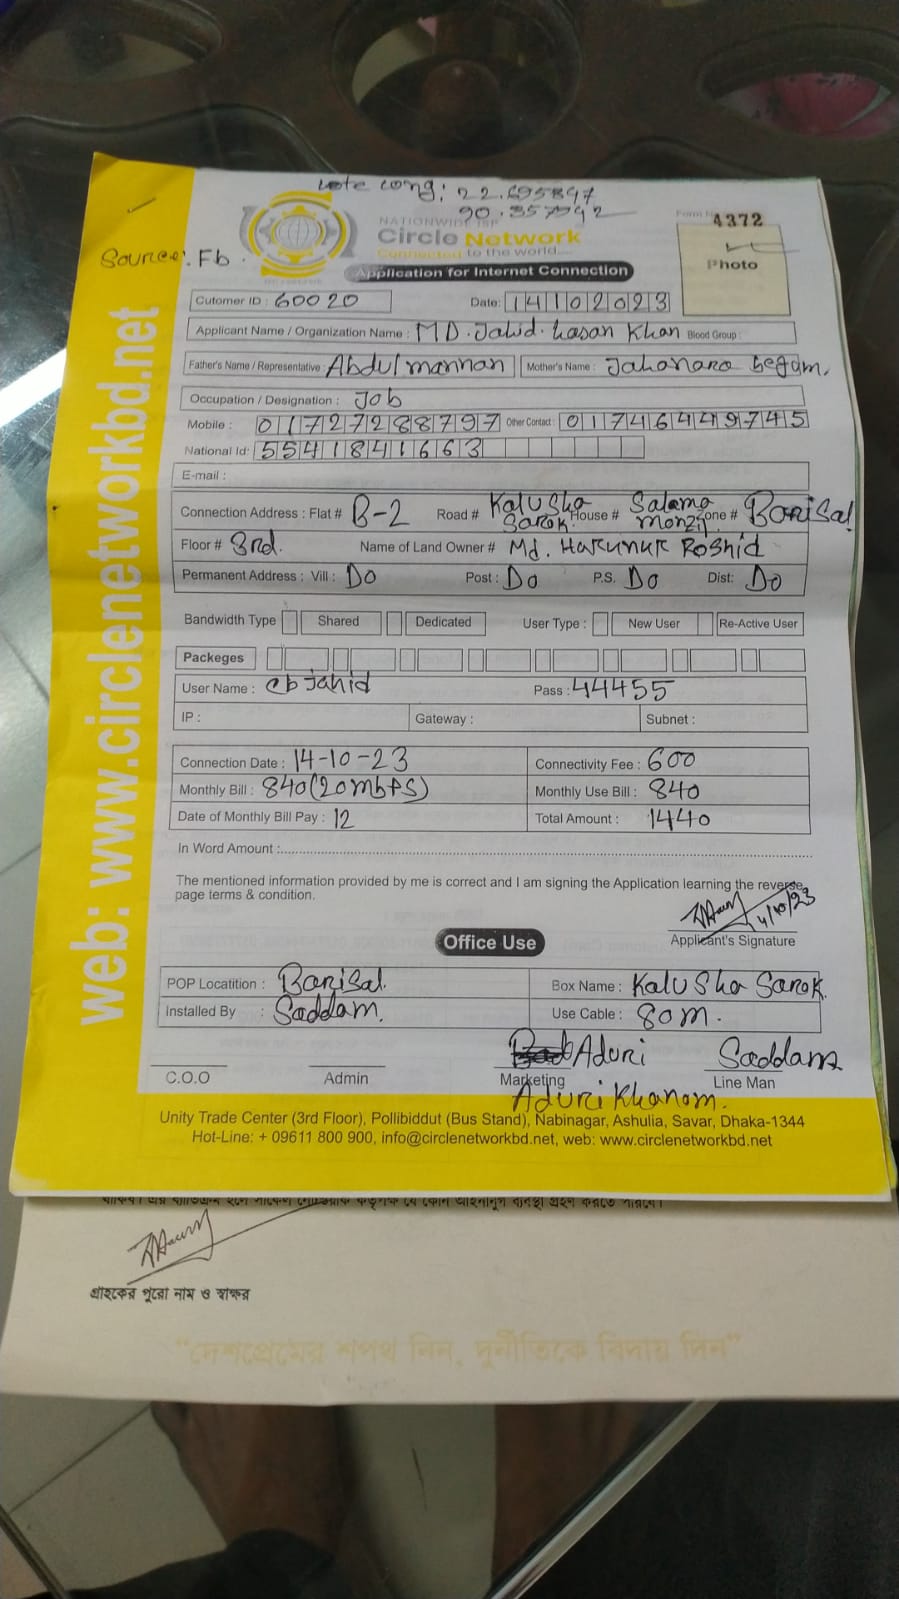 Late Long: 22.695847
90.357942
Form No 4372
Source: Fb.
NATIONWIDE ISP
Circle Network
Connected to the world....
Application for Internet Connection
Photo
Cutomer ID : 60020 Date: 14102023
Applicant Name / Organization Name : MD. Jahid. hasan Khan Blood Group :
Father's Name / Representative : Abdul mannan Mother's Name : Jahanara begum.
Occupation / Designation : Job
Mobile : 01727288797 Other Contact : 01746449745
National Id: 5541841663
E-mail :
Connection Address : Flat # B-2 Road # Kalu Sha Sarok House # Salama Monzil Zone # Barisal
Floor # 3rd. Name of Land Owner # Md. Harunur Roshid
Permanent Address : Vill : Do Post : Do P.S. Do Dist: Do
Bandwidth Type Shared Dedicated User Type : New User Re-Active User
Packeges
User Name : cb jahid Pass : 44455
IP : Gateway : Subnet :
Connection Date : 14-10-23 Connectivity Fee : 600
Monthly Bill : 840 (20 mbps) Monthly Use Bill : 840
Date of Monthly Bill Pay : 12 Total Amount : 1440
In Word Amount :
The mentioned information provided by me is correct and I am signing the Application learning the reverse
page terms & condition.
14/10/23
Applicant's Signature
Office Use
POP Locatition : Barisal. Box Name : Kalu Sha Sarok.
Installed By : Saddam. Use Cable : 80m.
Aduri Saddam
C.O.O Admin Marketing Line Man
Aduri Khanom.
Unity Trade Center (3rd Floor), Pollibiddut (Bus Stand), Nabinagar, Ashulia, Savar, Dhaka-1344
Hot-Line: + 09611 800 900, info@circlenetworkbd.net, web: www.circlenetworkbd.net
web: www.circlenetworkbd.net
গ্রাহকের পুরো নাম ও স্বাক্ষর
"দেশপ্রেমের শপথ নিন, দুর্নীতিকে বিদায় দিন"